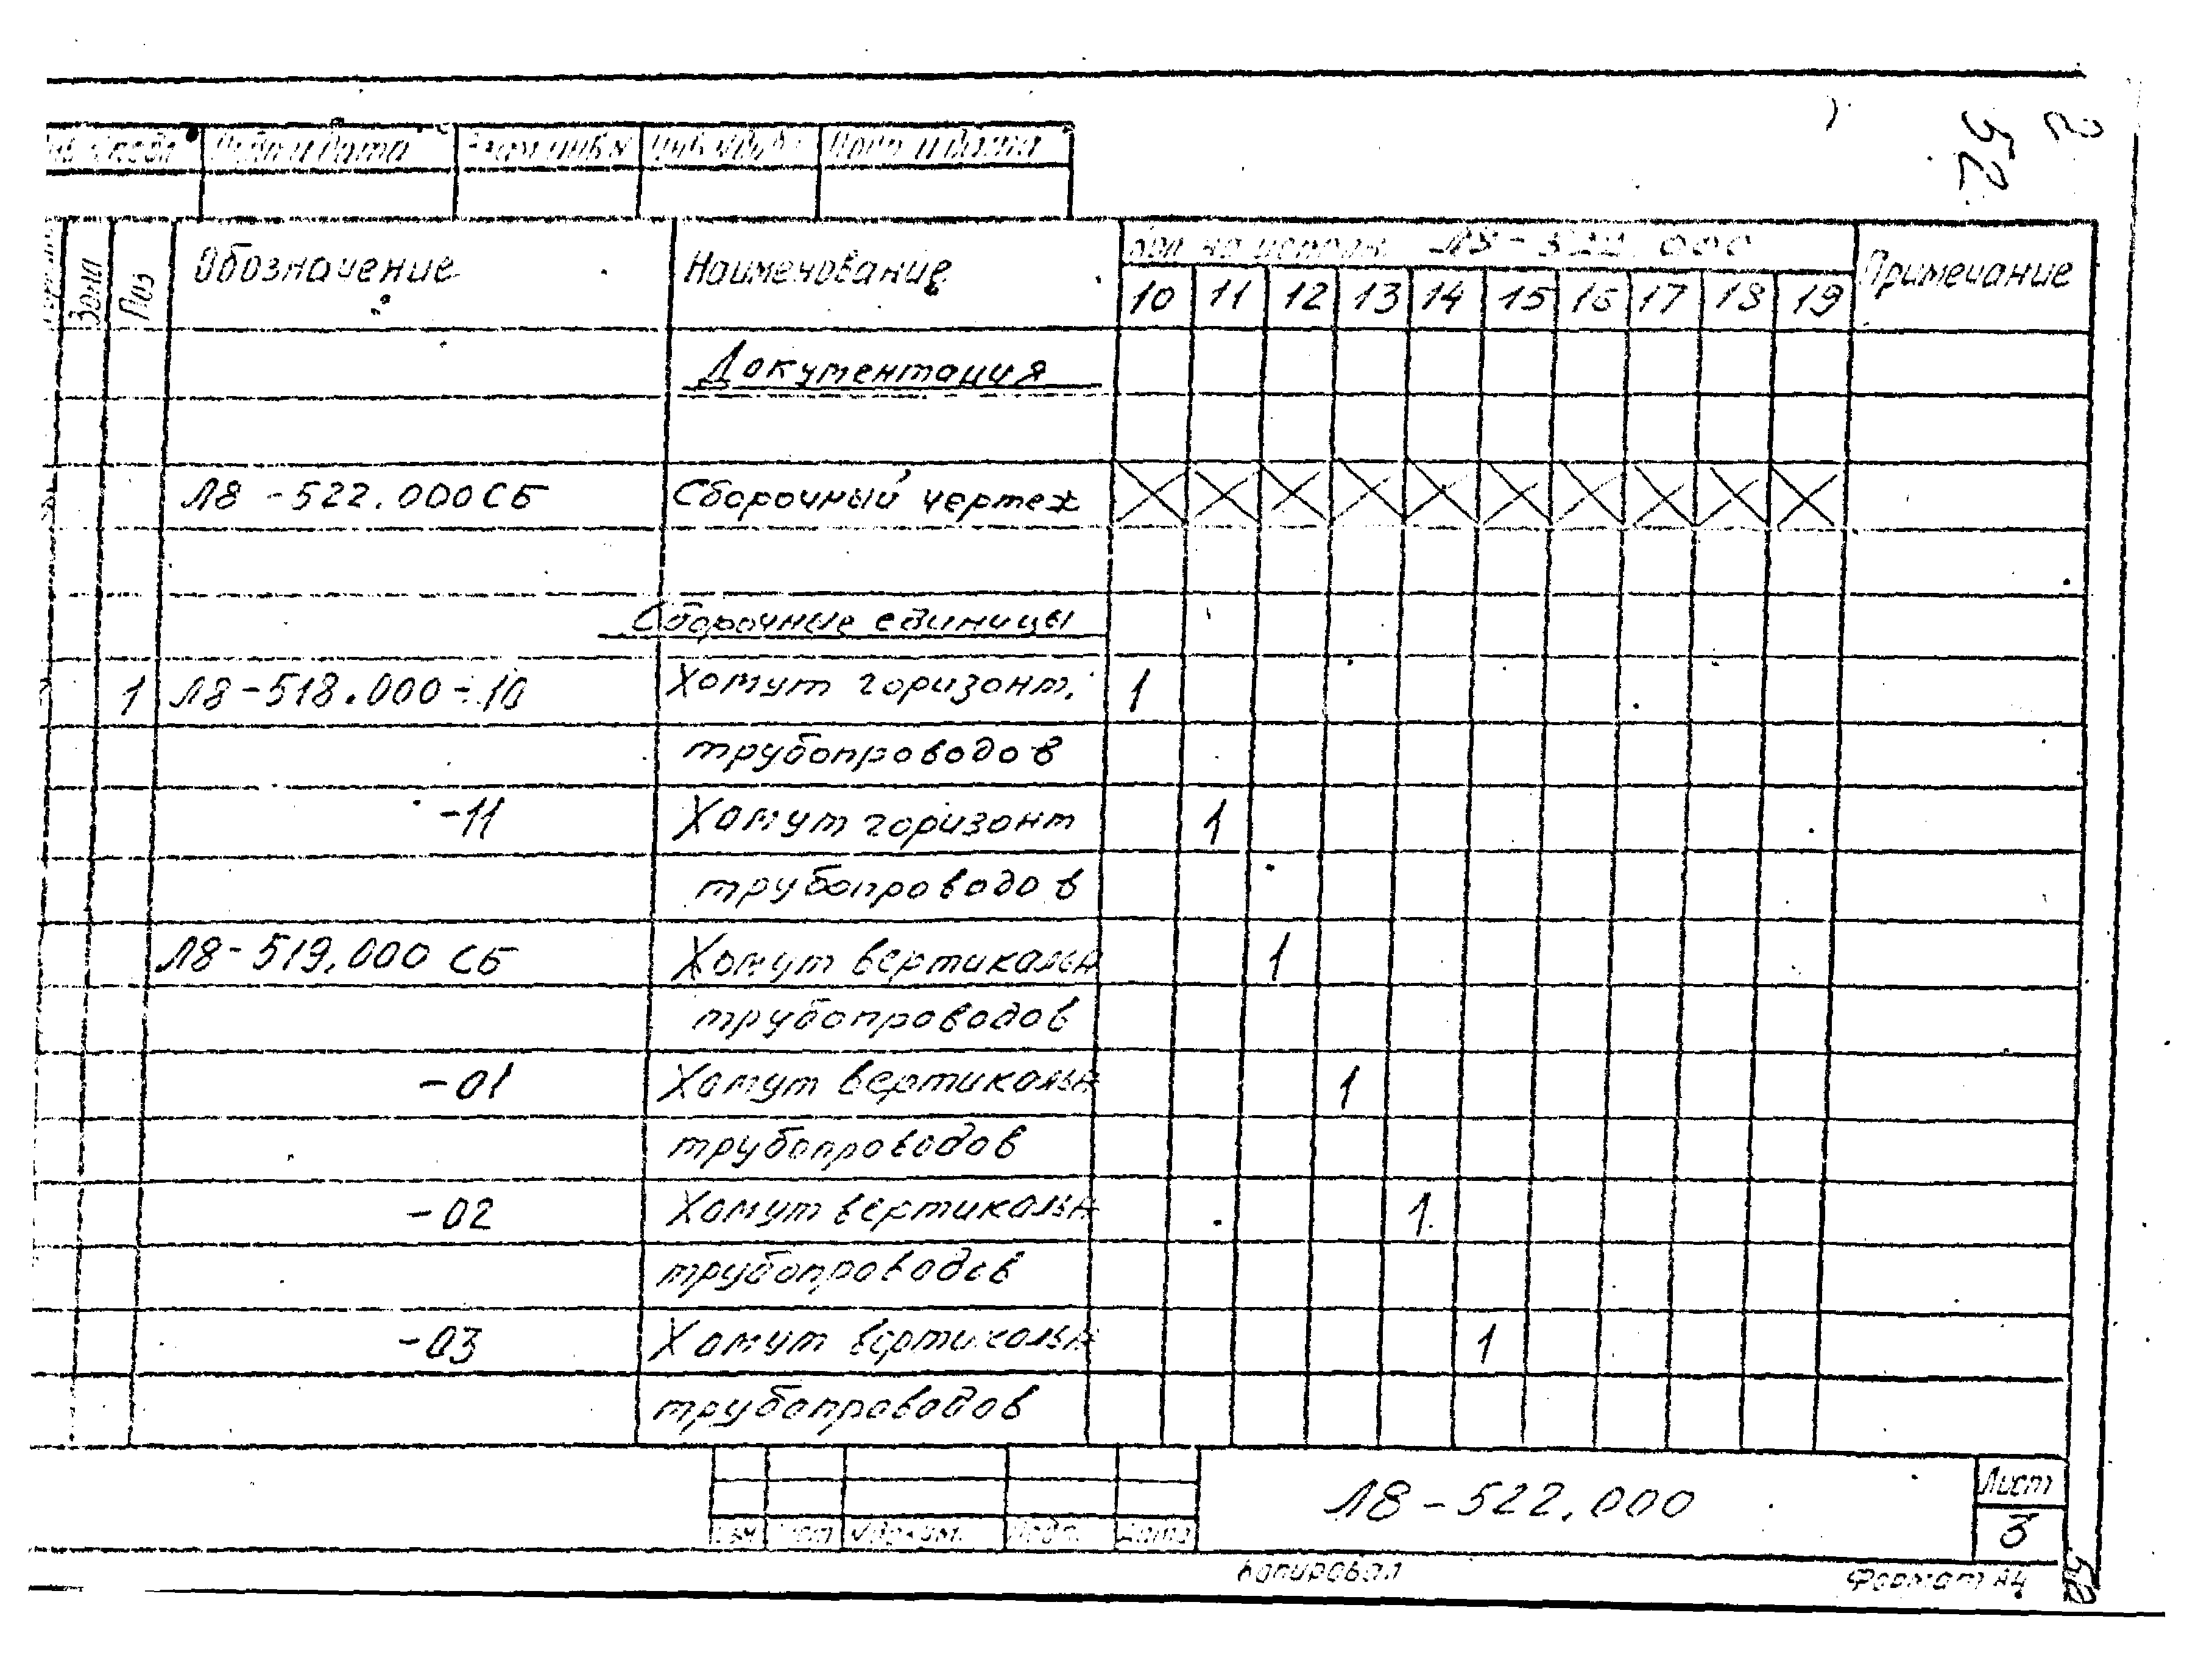 Подп и дата Взам инв № Подп и дата
52
Зона Поз Обозначение Наименование Кол на исполн Л8-522.000 Примечание
10 11 12 13 14 15 16 17 18 19
Документация
Л8-522.000СБ Сборочный чертеж
Сборочные единицы
1 Л8-518.000-10 Хомут горизонт. 1
трубопроводов
-11 Хомут горизонт 1
трубопроводов
Л8-519.000 СБ Хомут вертикальн 1
трубопроводов
-01 Хомут вертикальн 1
трубопроводов
-02 Хомут вертикальн 1
трубопроводов
-03 Хомут вертикальн 1
трубопроводов
Л8-522.000 Лист
3
Изм Лист № докум. Подп. Дата
Копировал Формат А4
52